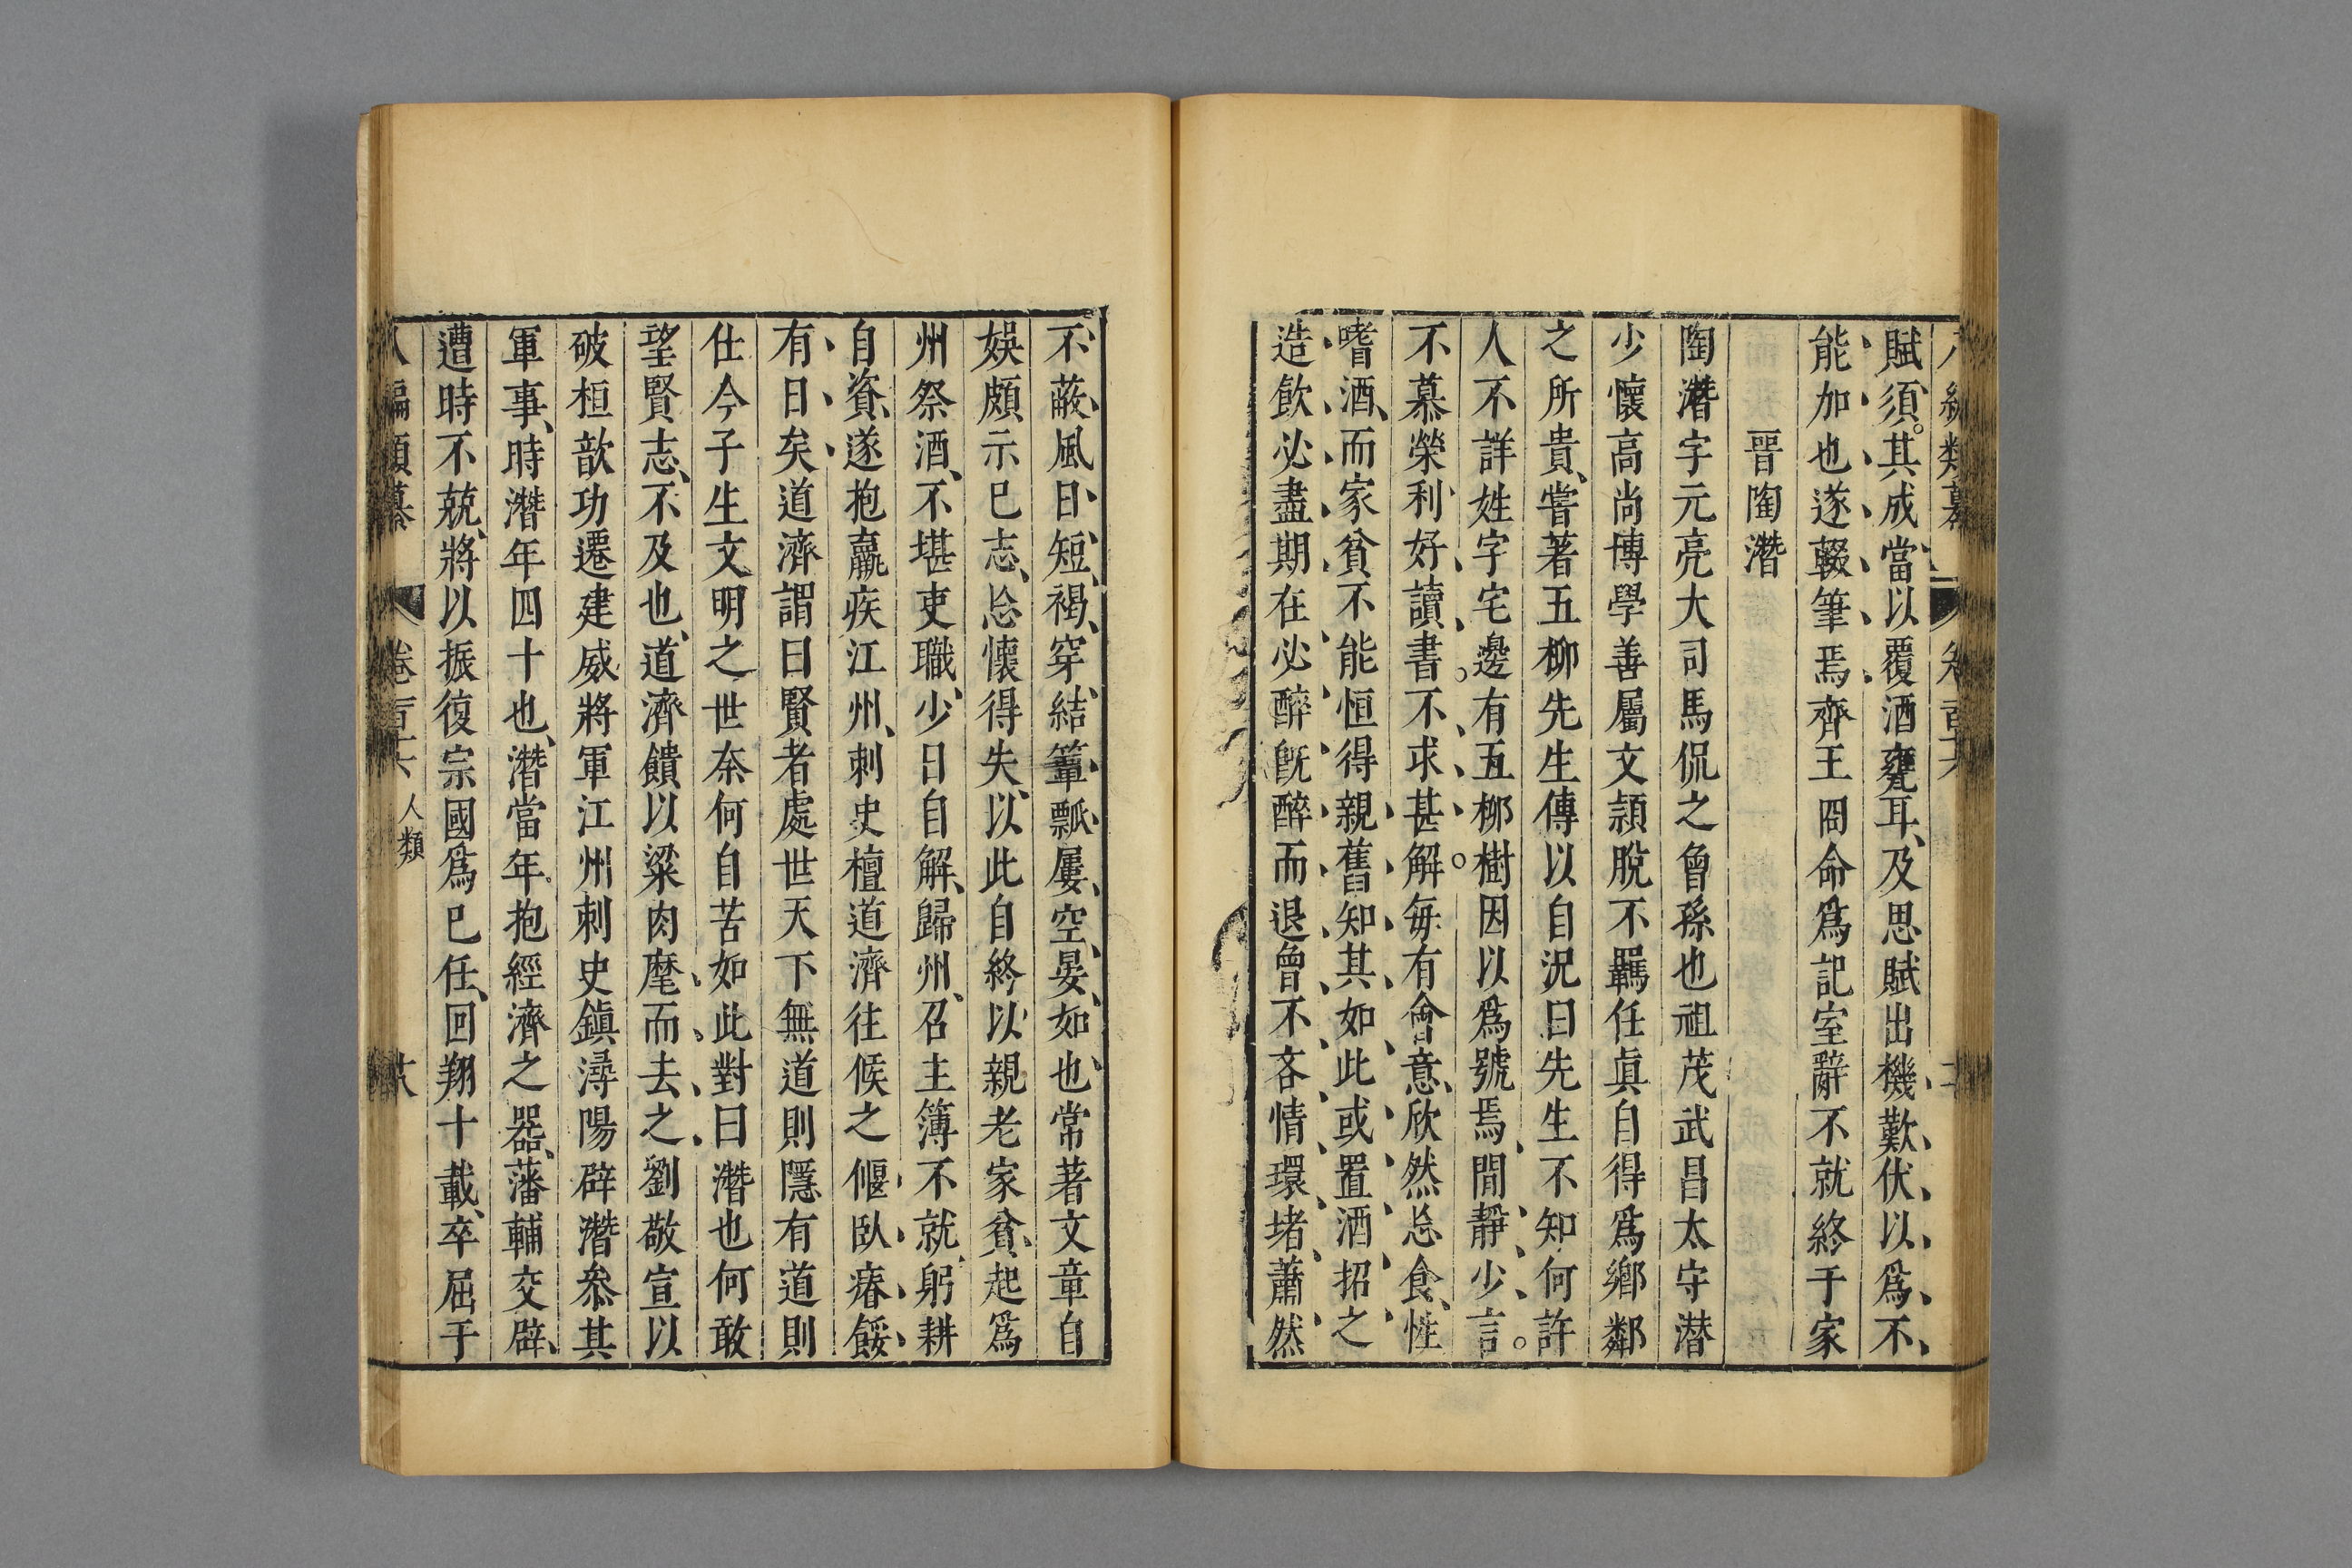 賦須其成當以覆酒甕耳及思賦出機歎伏以為不
能加也遂輟筆焉齊王冏命為記室辭不就終于家
晉陶潛
陶潛字元亮大司馬侃之曾孫也祖茂武昌太守潜
少懷高尚博學善屬文頴脫不羈任眞自得爲鄉鄰
之所貴嘗著五柳先生傳以自況曰先生不知何許
人不詳姓字宅邊有五柳樹因以爲號焉閒靜少言
不慕榮利好讀書不求甚解每有會意欣然忘食性
嗜酒而家貧不能恒得親舊知其如此或置酒招之
造飲必盡期在必醉旣醉而退曾不吝情環堵蕭然
不蔽風日短褐穿結簞瓢屢空晏如也常著文章自
娛頗示已志忘懷得失以此自終以親老家貧起爲
州祭酒不堪吏職少日自解歸州召主簿不就躬耕
自資遂抱羸疾江州刺史檀道濟往候之偃臥瘠餒
有日矣道濟謂曰賢者處世天下無道則隱有道則
仕今子生文明之世奈何自苦如此對曰潛也何敢
望賢志不及也道濟饋以粱肉麾而去之劉敬宣以
破桓歆功遷建威將軍江州刺史鎭潯陽辟潛叅其
軍事時潛年四十也潛當年抱經濟之器藩輔交辟
遭時不兢將以振復宗國爲已任回翔十載卒屈于
八編類纂
卷百六
人類